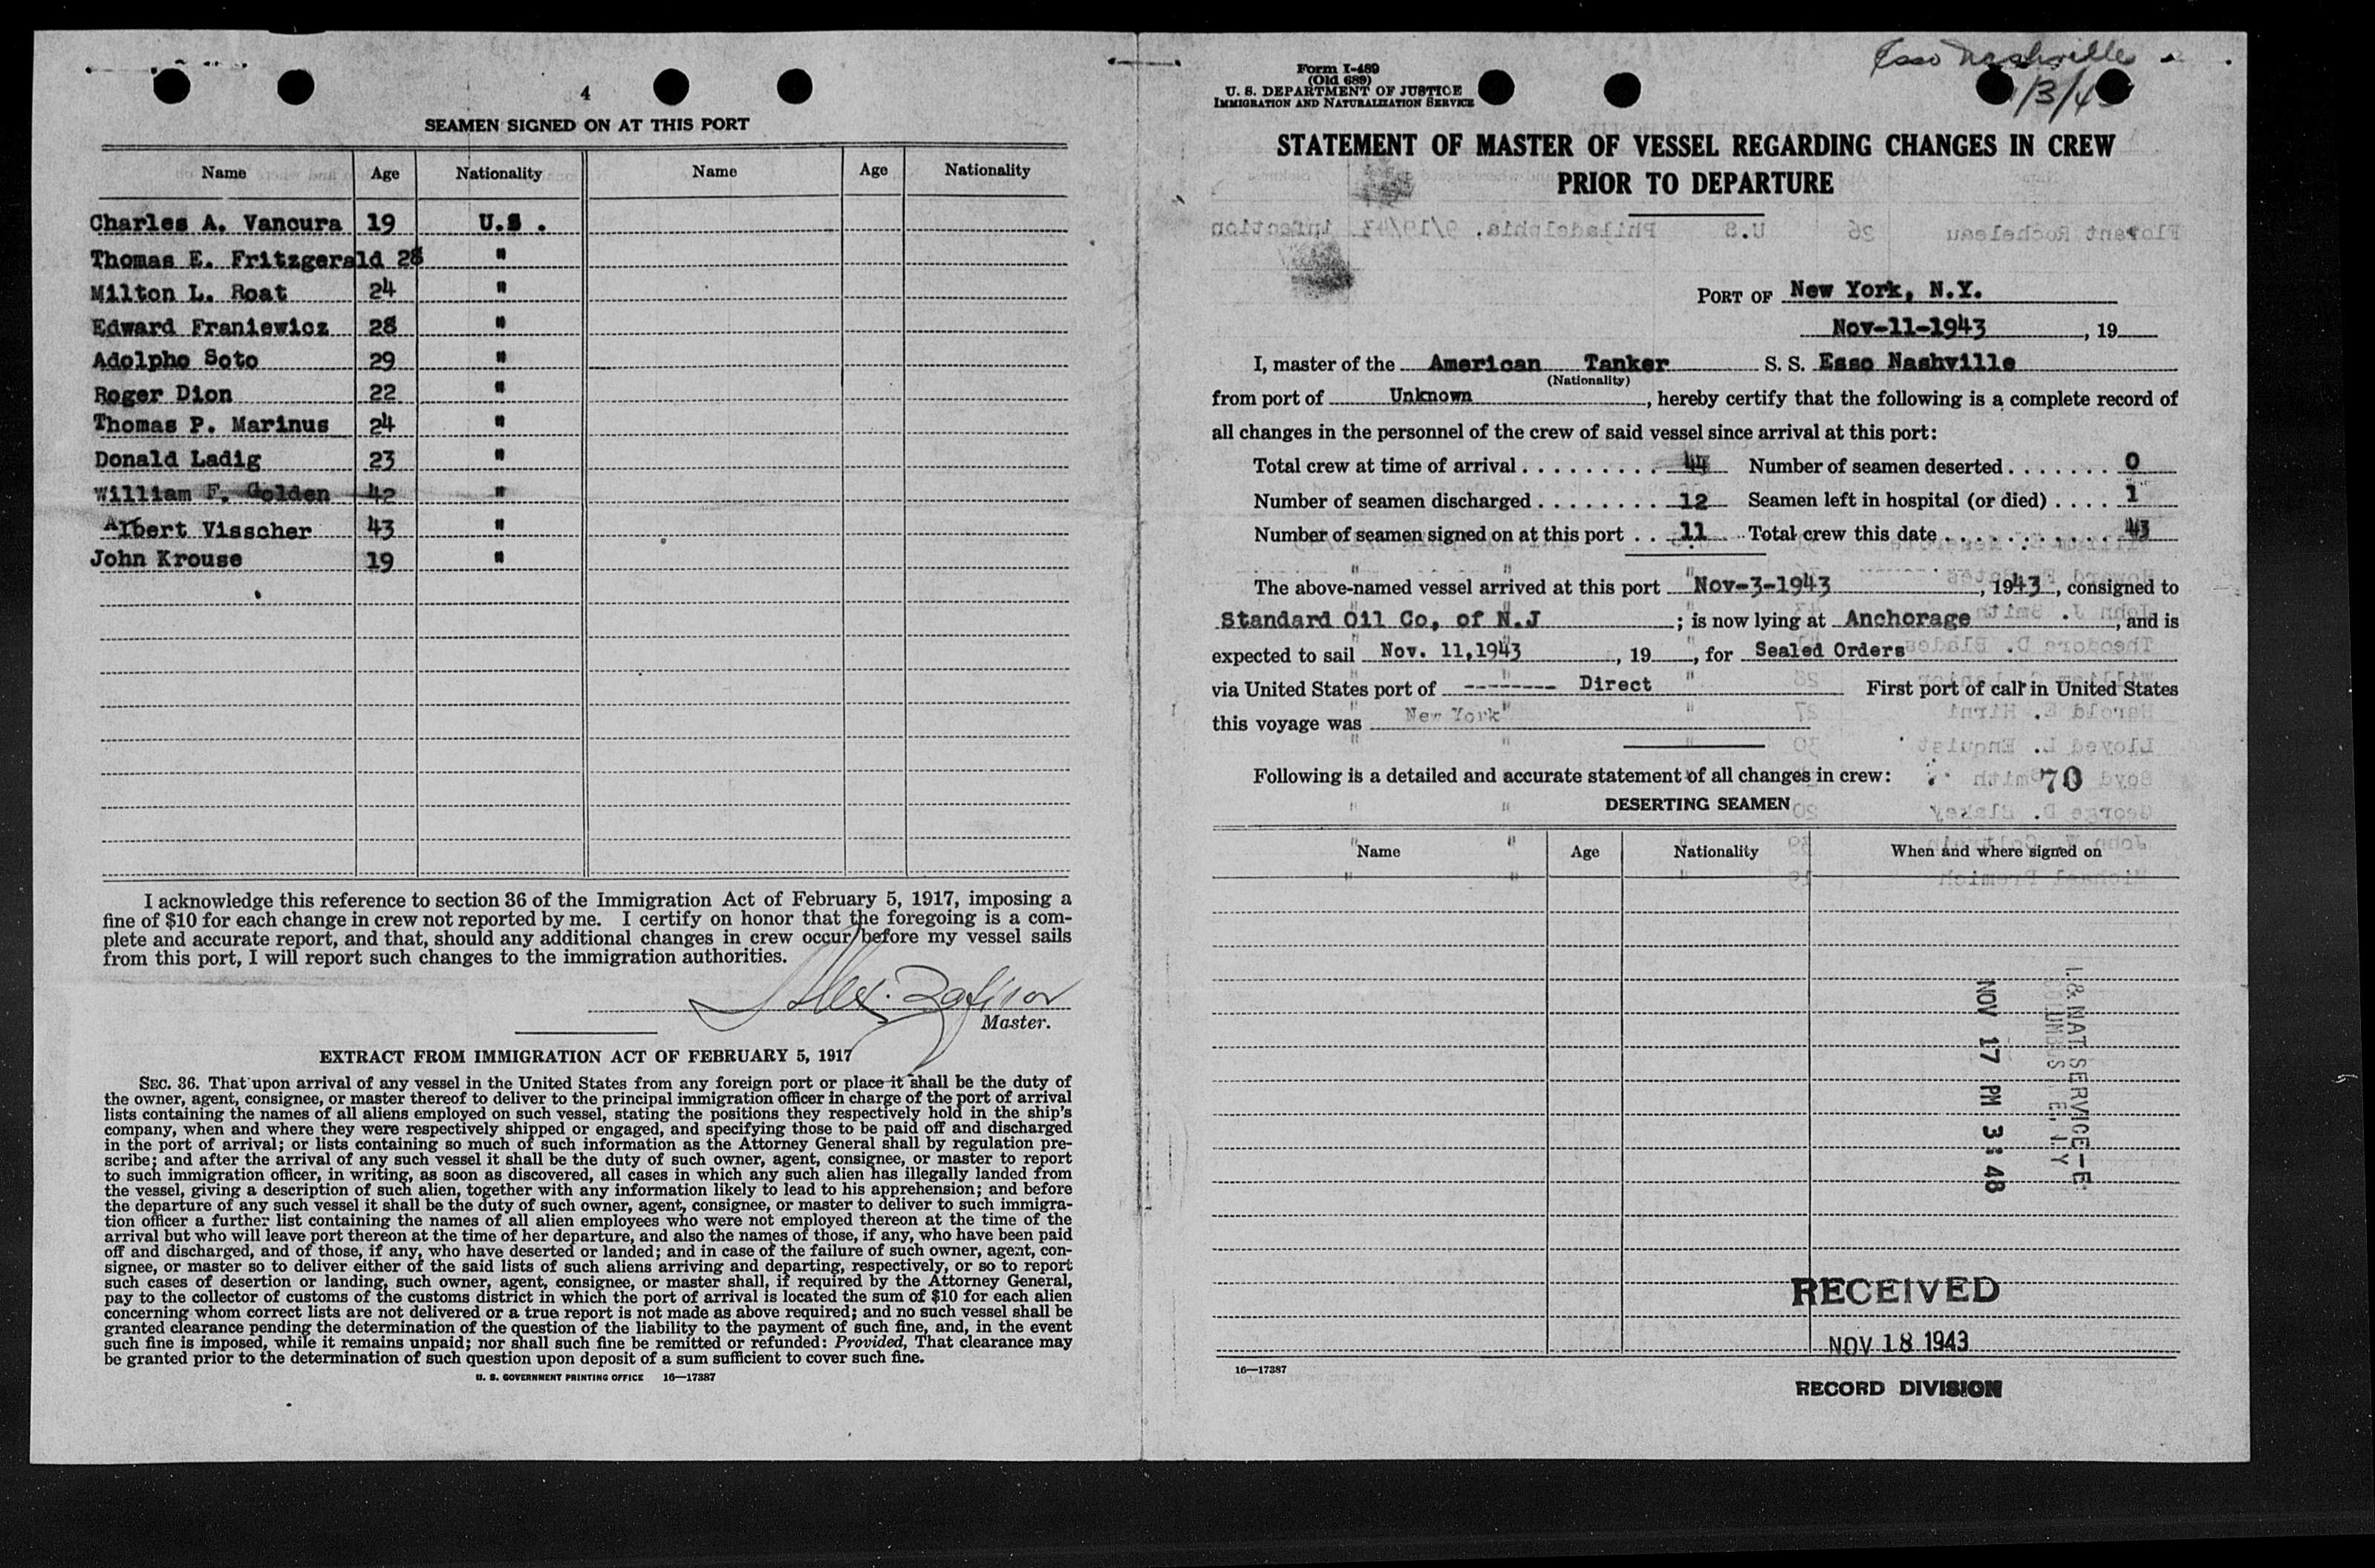 4
SEAMEN SIGNED ON AT THIS PORT
Name Age Nationality Name Age Nationality
Charles A. Vancura 19 U.S.
Thomas E. Fritzgerald 28 "
Milton L. Roat 24 "
Edward Franiewicz 28 "
Adolpho Soto 29 "
Roger Dion 22 "
Thomas P. Marinus 24 "
Donald Ladig 23 "
William F. Golden 42 "
Albert Visscher 43 "
John Krouse 19 "
I acknowledge this reference to section 36 of the Immigration Act of February 5, 1917, imposing a
fine of $10 for each change in crew not reported by me. I certify on honor that the foregoing is a com-
plete and accurate report, and that, should any additional changes in crew occur before my vessel sails
from this port, I will report such changes to the immigration authorities.
Master.
EXTRACT FROM IMMIGRATION ACT OF FEBRUARY 5, 1917
SEC. 36. That upon arrival of any vessel in the United States from any foreign port or place it shall be the duty of
the owner, agent, consignee, or master thereof to deliver to the principal immigration officer in charge of the port of arrival
lists containing the names of all aliens employed on such vessel, stating the positions they respectively hold in the ship's
company, when and where they were respectively shipped or engaged, and specifying those to be paid off and discharged
in the port of arrival; or lists containing so much of such information as the Attorney General shall by regulation pre-
scribe; and after the arrival of any such vessel it shall be the duty of such owner, agent, consignee, or master to report
to such immigration officer, in writing, as soon as discovered, all cases in which any such alien has illegally landed from
the vessel, giving a description of such alien, together with any information likely to lead to his apprehension; and before
the departure of any such vessel it shall be the duty of such owner, agent, consignee, or master to deliver to such immigra-
tion officer a further list containing the names of all alien employees who were not employed thereon at the time of the
arrival but who will leave port thereon at the time of her departure, and also the names of those, if any, who have been paid
off and discharged, and of those, if any, who have deserted or landed; and in case of the failure of such owner, agent, con-
signee, or master so to deliver either of the said lists of such aliens arriving and departing, respectively, or so to report
such cases of desertion or landing, such owner, agent, consignee, or master shall, if required by the Attorney General,
pay to the collector of customs of the customs district in which the port of arrival is located the sum of $10 for each alien
concerning whom correct lists are not delivered or a true report is not made as above required; and no such vessel shall be
granted clearance pending the determination of the question of the liability to the payment of such fine, and, in the event
such fine is imposed, while it remains unpaid; nor shall such fine be remitted or refunded: Provided, That clearance may
be granted prior to the determination of such question upon deposit of a sum sufficient to cover such fine.
U. S. GOVERNMENT PRINTING OFFICE 16—17387
Esso Nashville
Form I-489
(Old 689)
U. S. DEPARTMENT OF JUSTICE
IMMIGRATION AND NATURALIZATION SERVICE
STATEMENT OF MASTER OF VESSEL REGARDING CHANGES IN CREW
PRIOR TO DEPARTURE
PORT OF New York, N.Y.
Nov-11-1943, 19
I, master of the American Tanker S. S. Esso Nashville
(Nationality)
from port of Unknown, hereby certify that the following is a complete record of
all changes in the personnel of the crew of said vessel since arrival at this port:
Total crew at time of arrival . . . . . . . . . 44 Number of seamen deserted . . . . . . . 0
Number of seamen discharged . . . . . . . . 12 Seamen left in hospital (or died) . . . . 1
Number of seamen signed on at this port . . 11 Total crew this date . . . . . . . . . . . 43
The above-named vessel arrived at this port Nov-3-1943, 1943, consigned to
Standard Oil Co, of N.J ; is now lying at Anchorage, and is
expected to sail Nov. 11,1943, 19, for Sealed Orders
via United States port of -------- Direct First port of call in United States
this voyage was New York
Following is a detailed and accurate statement of all changes in crew: 70
DESERTING SEAMEN
Name Age Nationality When and where signed on
I.& NAT. SERVICE-E.
NOV 17 PM 3:48
RECEIVED
NOV 18 1943
RECORD DIVISION
16—17387